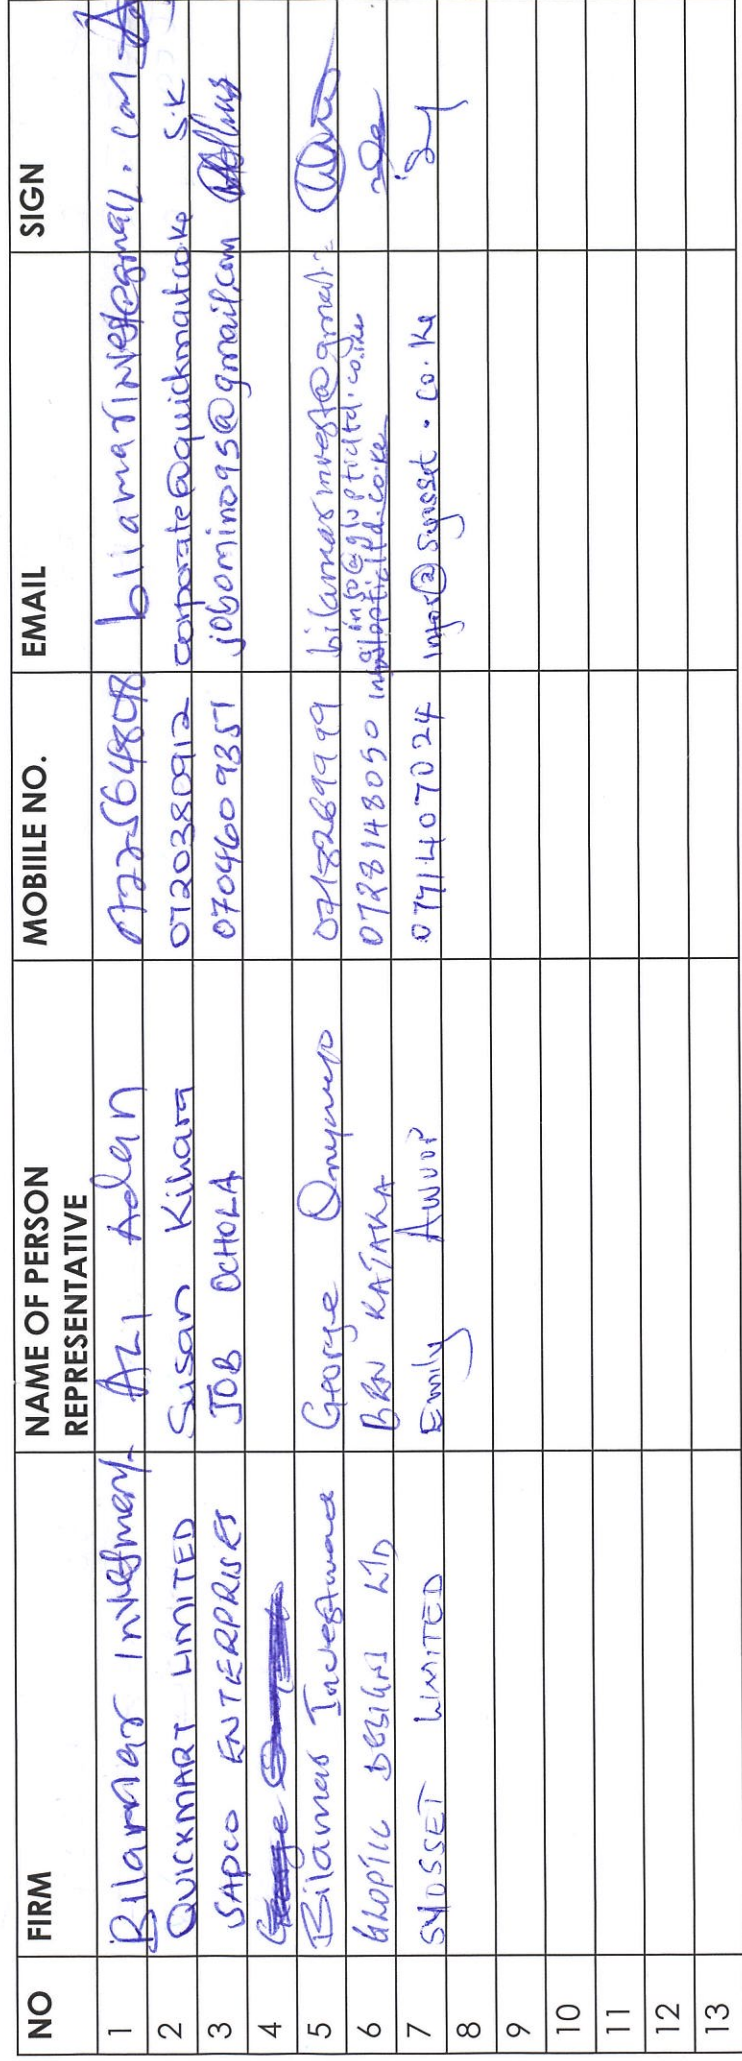 NO FIRM NAME OF PERSON REPRESENTATIVE MOBIILE NO. EMAIL SIGN
1 Bilamar Investment ALI Adan 0722564808 bilamarinvest@gmail.com
2 QUICKMART LIMITED Susan Kihara 0720380912 corporate@quickmart.co.ke S.K
3 SAPCO ENTERPRISES JOB OCHOLA 0704609351 jobomino95@gmail.com
4 George
5 Bilamar Investment George Onyango 0718269999 bilamarinvest@gmail.
6 GLOPTIC DESIGNS LTD BEN KATAKA 0728148050 info@glopticltd.co.ke
7 SYOSSET LIMITED Emily Awuor 0791407024 info@syosset.co.ke
8
9
10
11
12
13